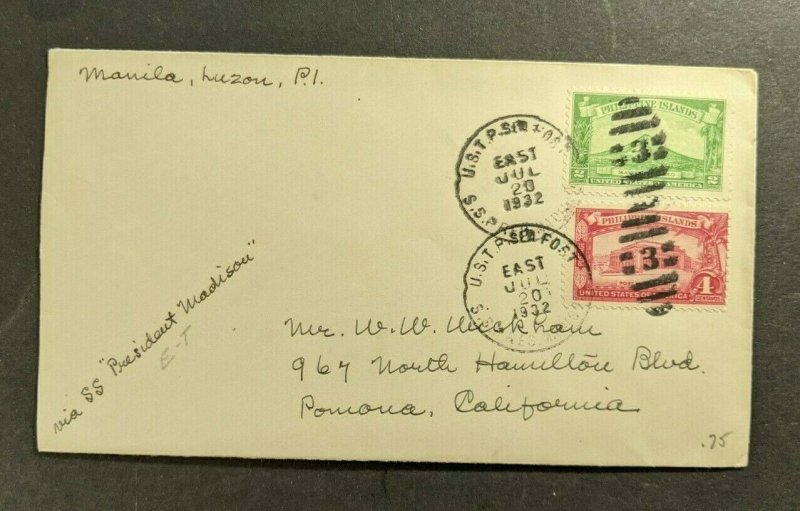 Manila, Luzon, P.I.
PHILIPPINE ISLANDS
2 2
UNITED STATES OF AMERICA
U.S.T.P. SEA POST
EAST
JUL
20
1932
S.S.
3
PHILIPPINE ISLANDS
4
UNITED STATES OF AMERICA
CENTAVOS
U.S.T.P. SEA POST
EAST
JUL
20
1932
S.S.
3
via SS "President Madison"
E-T
Mr. W. W. Wickham
967 North Hamilton Blvd.
Pomona, California
.75